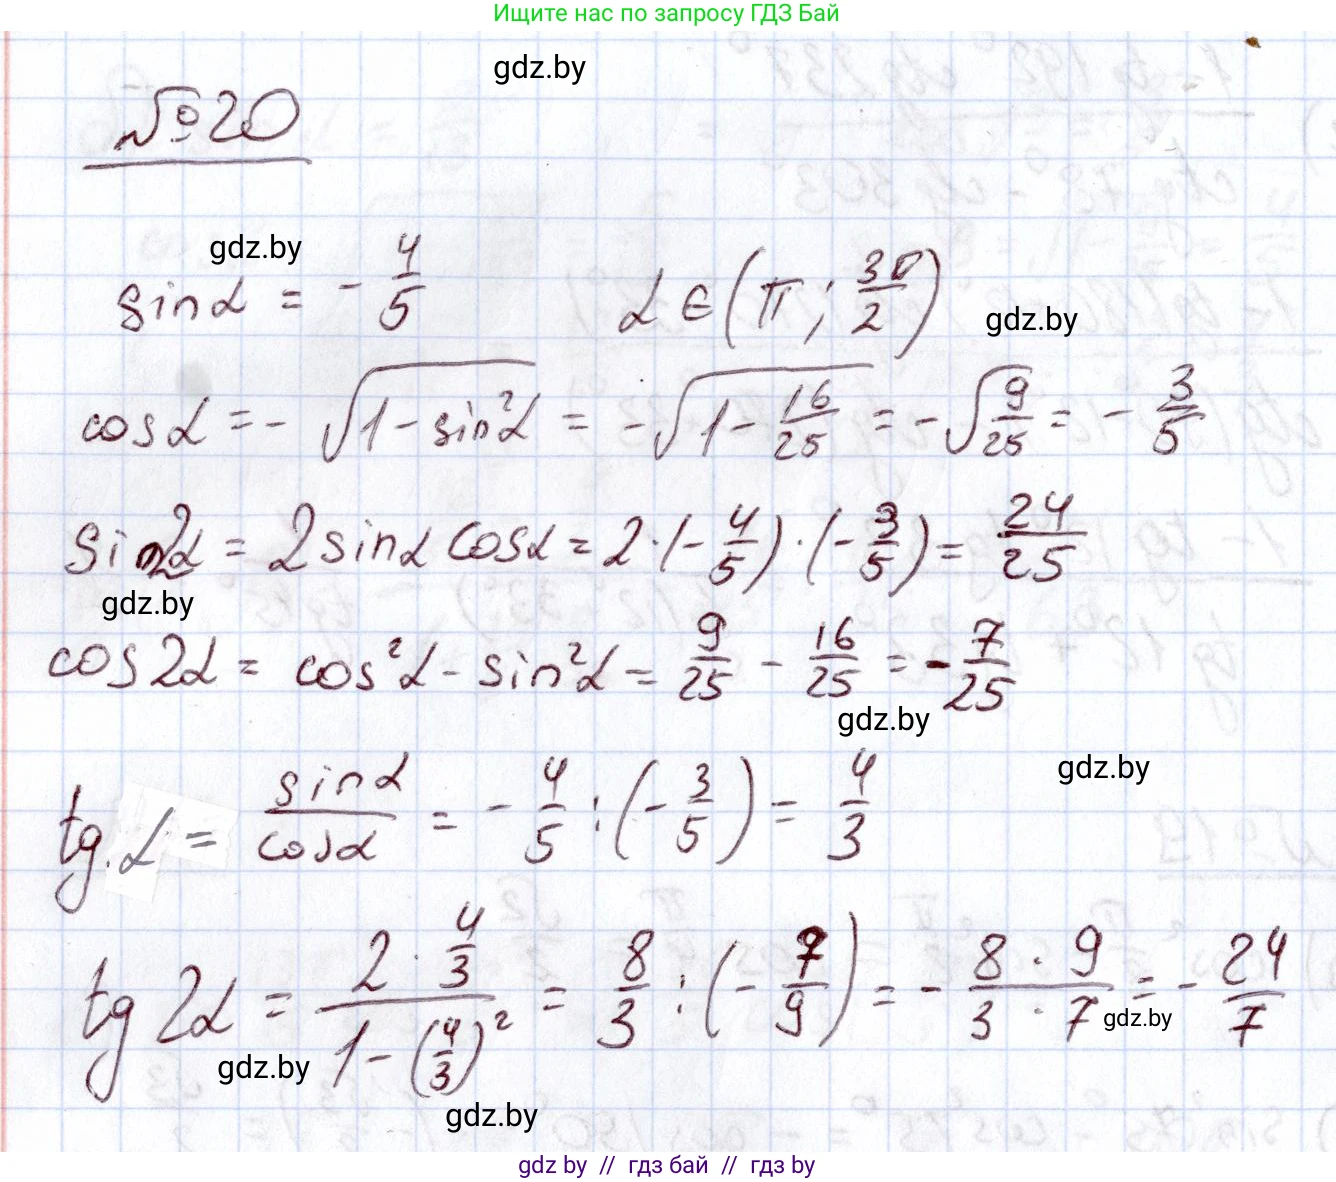 Ищите нас по запросу ГДЗ Бай
gdz.by
№20
gdz.by
sinα = - 4/5 α ∈ (π; 3π/2)
gdz.by
cosα = - √(1 - sin²α) = - √(1 - 16/25) = - √(9/25) = - 3/5
sin2α = 2sinα cosα = 2·(- 4/5)·(- 3/5) = 24/25
gdz.by
cos2α = cos²α - sin²α = 9/25 - 16/25 = - 7/25
gdz.by
gdz.by
tg α = sinα/cosα = - 4/5 : (- 3/5) = 4/3
tg 2α = (2 · 4/3)/(1 - (4/3)²) = 8/3 : (- 7/9) = - (8 · 9)/(3 · 7) = - 24/7
gdz.by
gdz.by
gdz.by
gdz by // гдз бай // гдз by